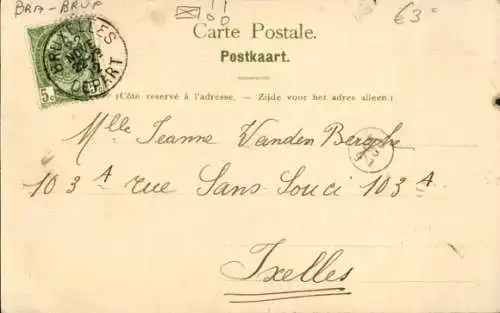 BRA-BRUP
€3=
Carte Postale.
Postkaart.
BRUXELLES
DEPART
5
(Côté reservé à l'adresse. - Zijde voor het adres alleen.)
Mlle Jeanne Vanden Berghe
103 A rue Sans Souci 103 A
Ixelles